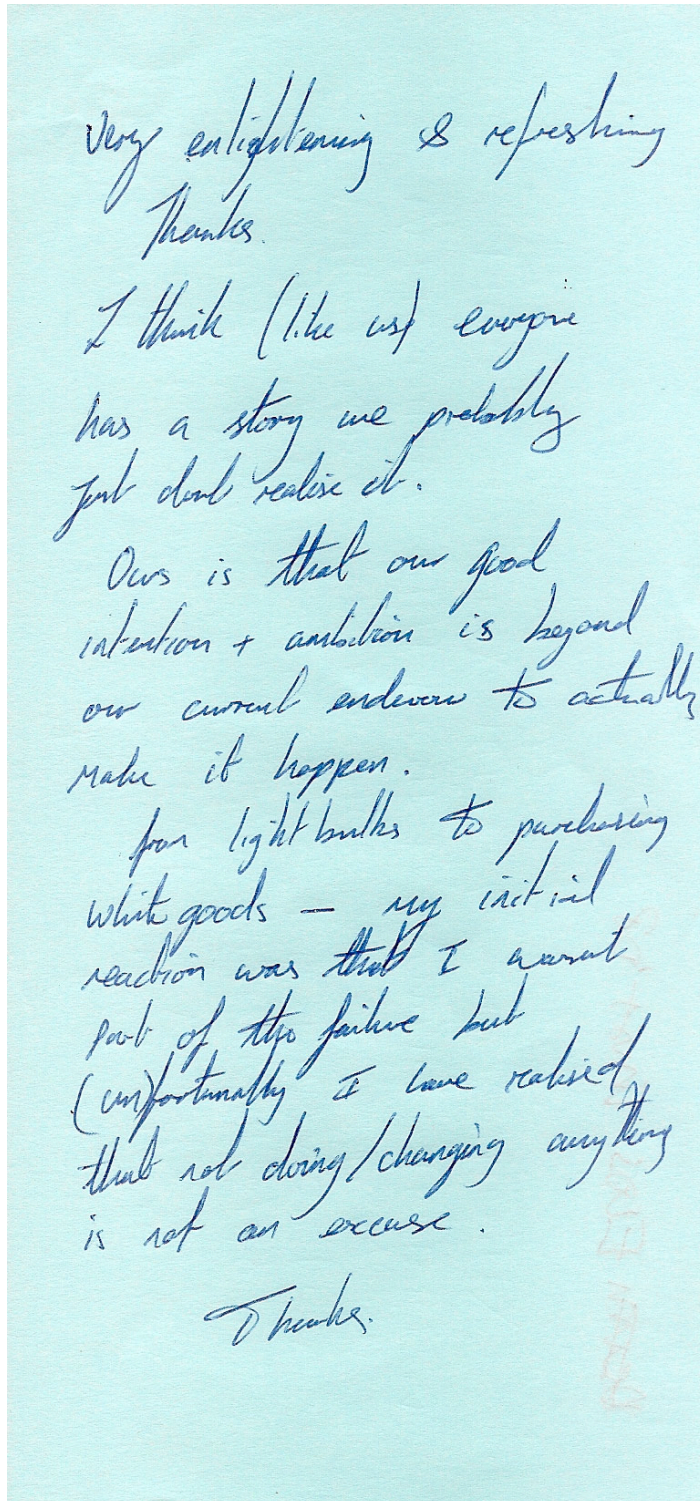 Very enlightening & refreshing
Thanks.
I think (like us) everyone
has a story we probably
just don't realise it.
Ours is that our good
intention + ambition is beyond
our current endevour to actually
make it happen.
from lightbulbs to purchasing
white goods — my initial
reaction was that I wasnt
part of the failure but
(un)fortunatly I have realised
that not doing/changing anything
is not an excuse.
Thanks.